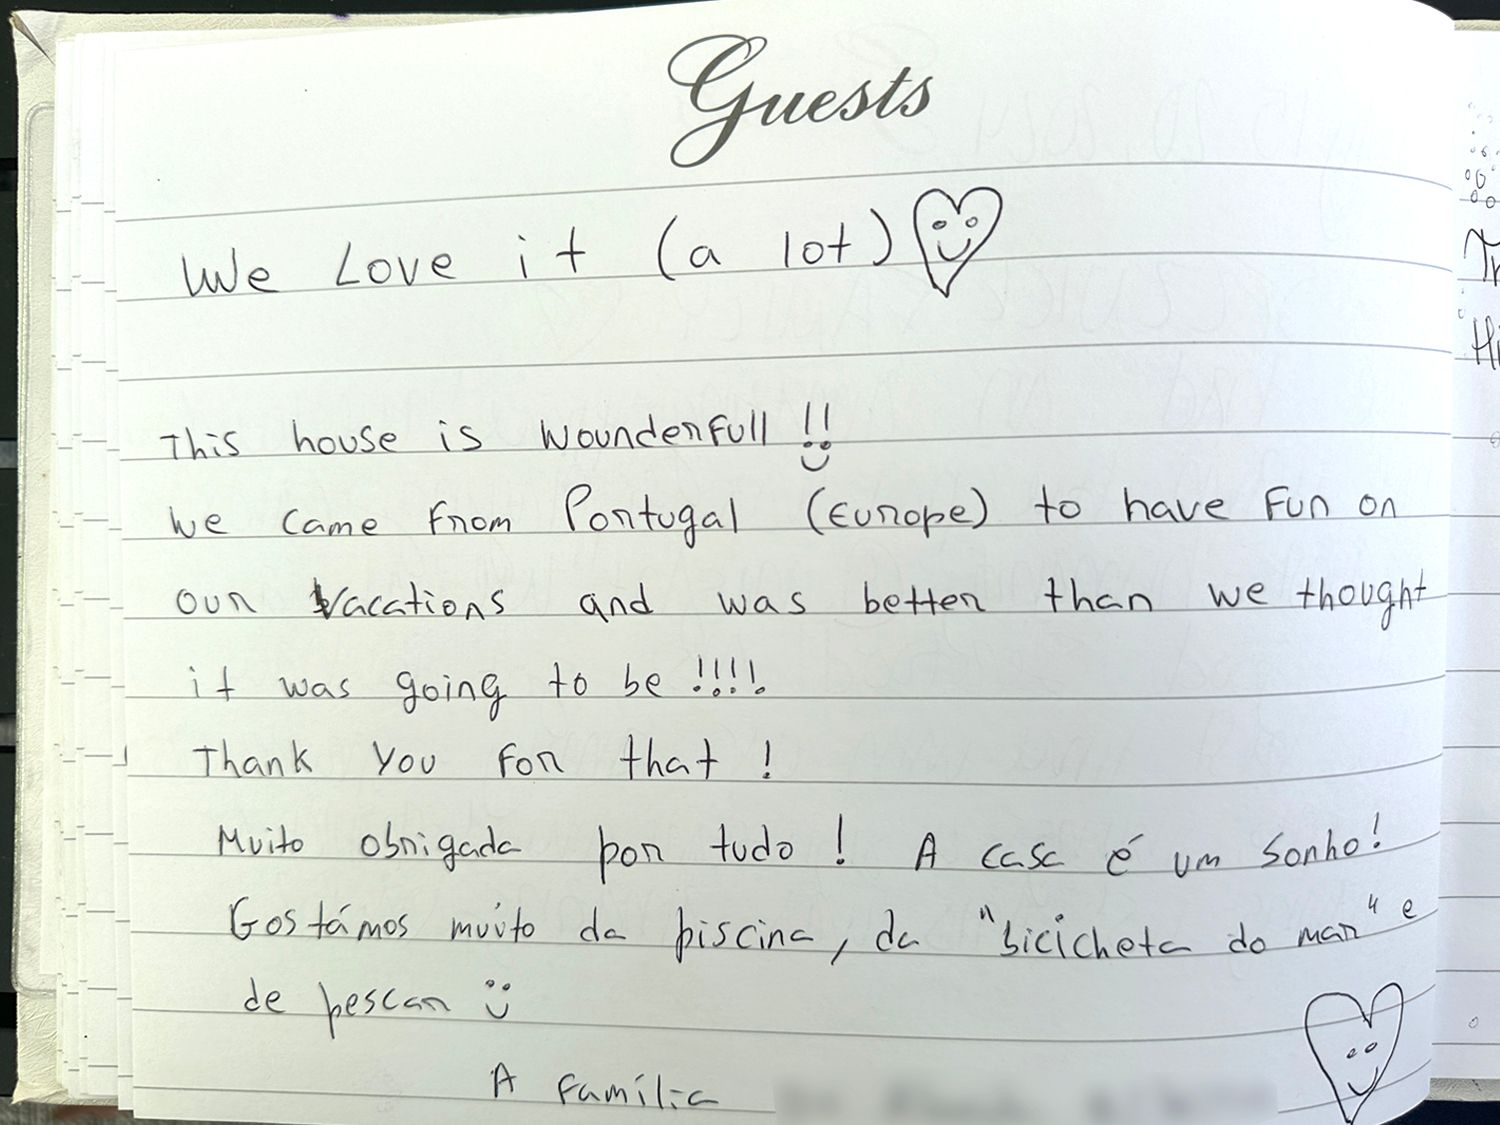 Guests
We Love it (a lot)
This house is Wounderfull !!
We came from Portugal (Europe) to have Fun on
our Vacations and was better than we thought
it was going to be !!!!
Thank You For that !
Muito obrigada por tudo ! A casa é um sonho!
Gostámos muito da piscina, da "bicicheta do mar" e
de pescar
A família
Tr
Hi